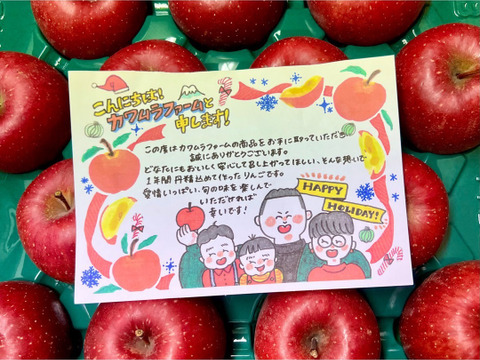 こんにちは!
カワムラファームと
申します!
この度はカワムラファームの商品をお手に取っていただき
誠にありがとうございます。
どなたにもおいしく安心して召し上がってほしい、そんな想いで
1年間丹精込めて作ったりんごです。
愛情いっぱい、旬の味を楽しんで
いただければ
幸いです!
HAPPY
HOLIDAY!